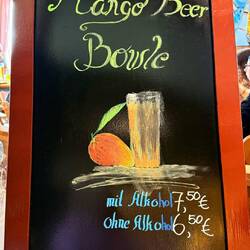 Mango Beer
Bowle
mit Alkohol 7,50 €
ohne Alkohol 6,50 €